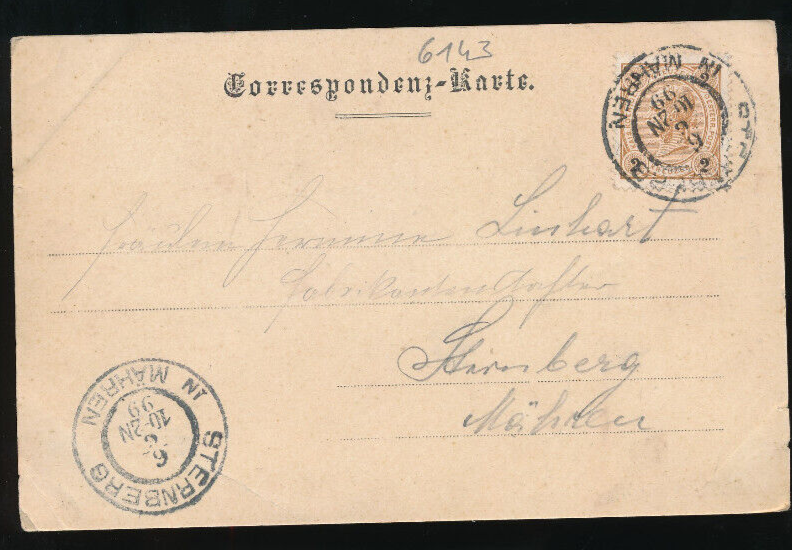 6143
Correspondenz-Karte.
IN MÄHREN
9 6
10-2N
99
2 2
Fräulein Hermine Linhart
Fabrikantenstochter
Sternberg
Mähren
STERNBERG IN MÄHREN
9 6
10-2N
99